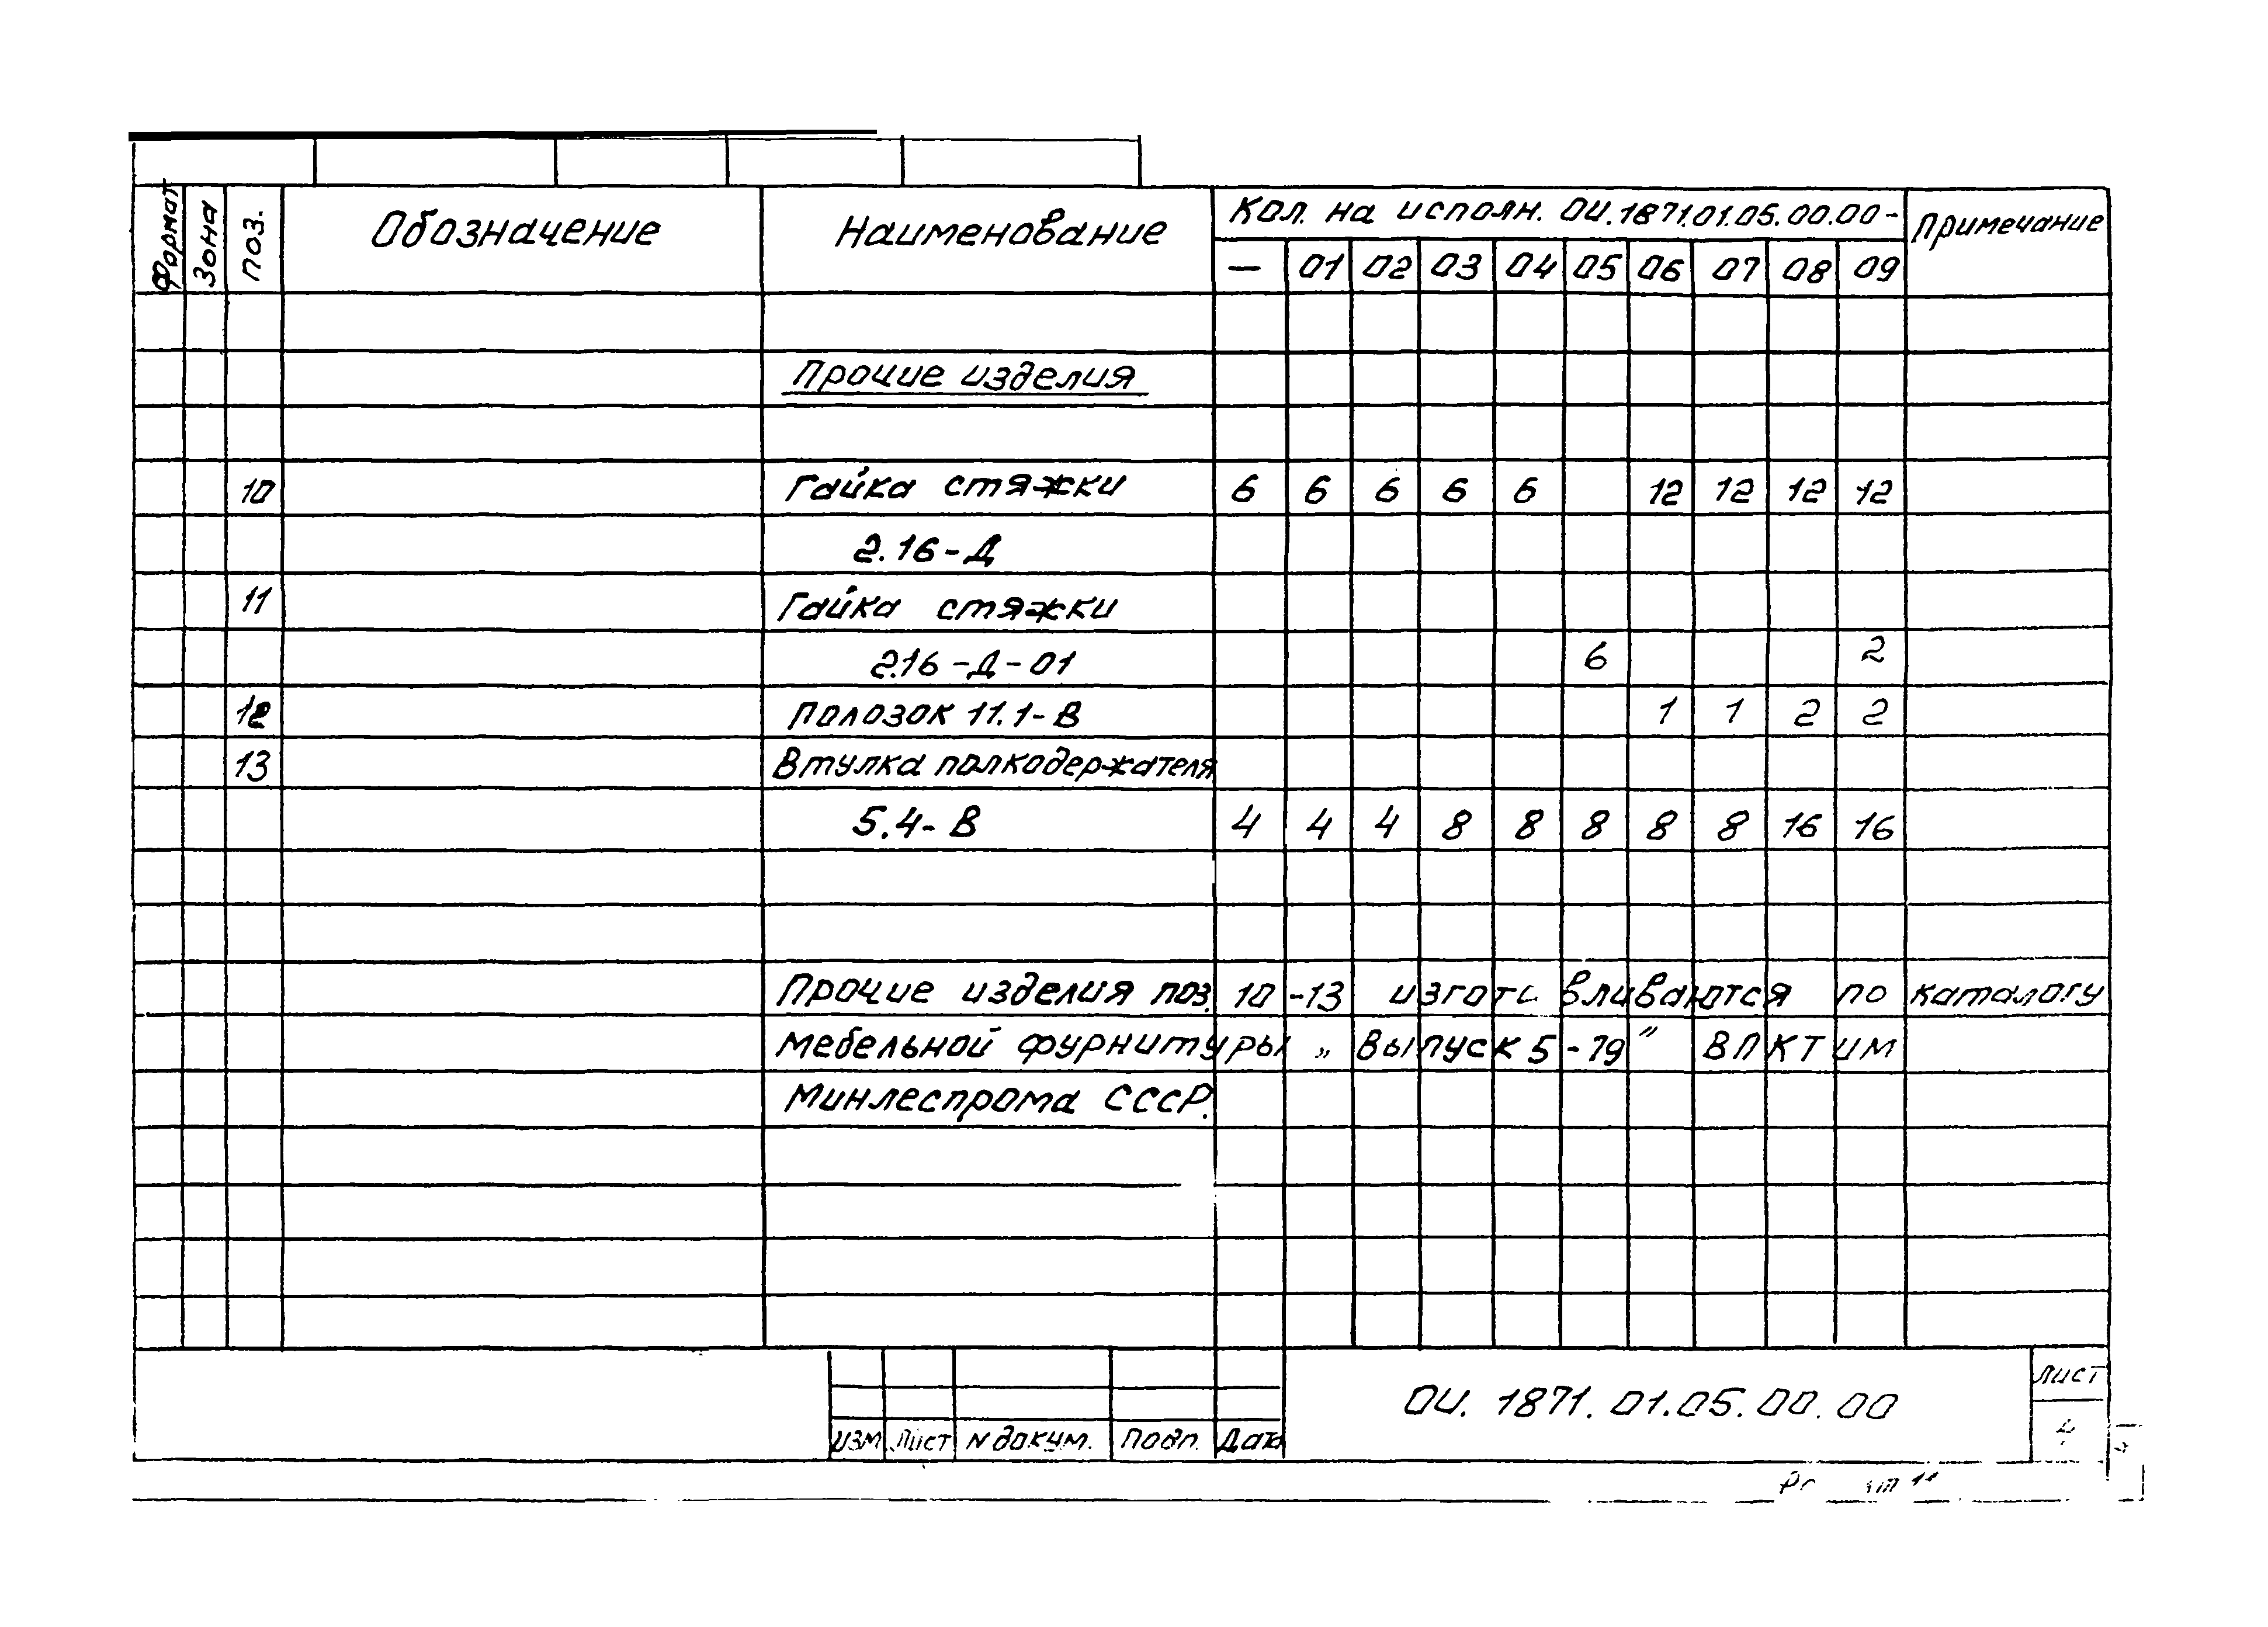 Формат Зона Поз. Обозначение Наименование Кол. на исполн. ОИ.1871.01.05.00.00- Примечание
— 01 02 03 04 05 06 07 08 09
Прочие изделия
10 Гайка стяжки 6 6 6 6 6 12 12 12 12
2.16-Д
11 Гайка стяжки
2.16-Д-01 6 2
12 Полозок 11.1-В 1 1 2 2
13 Втулка полкодержателя
5.4-В 4 4 4 8 8 8 8 8 16 16
Прочие изделия поз. 10-13 изготавливаются по каталогу
мебельной фурнитуры „Выпуск 5-79" ВПКТИМ
Минлеспрома СССР.
ОИ. 1871.01.05.00.00
Лист
4
Изм Лист N докум. Подп. Дата